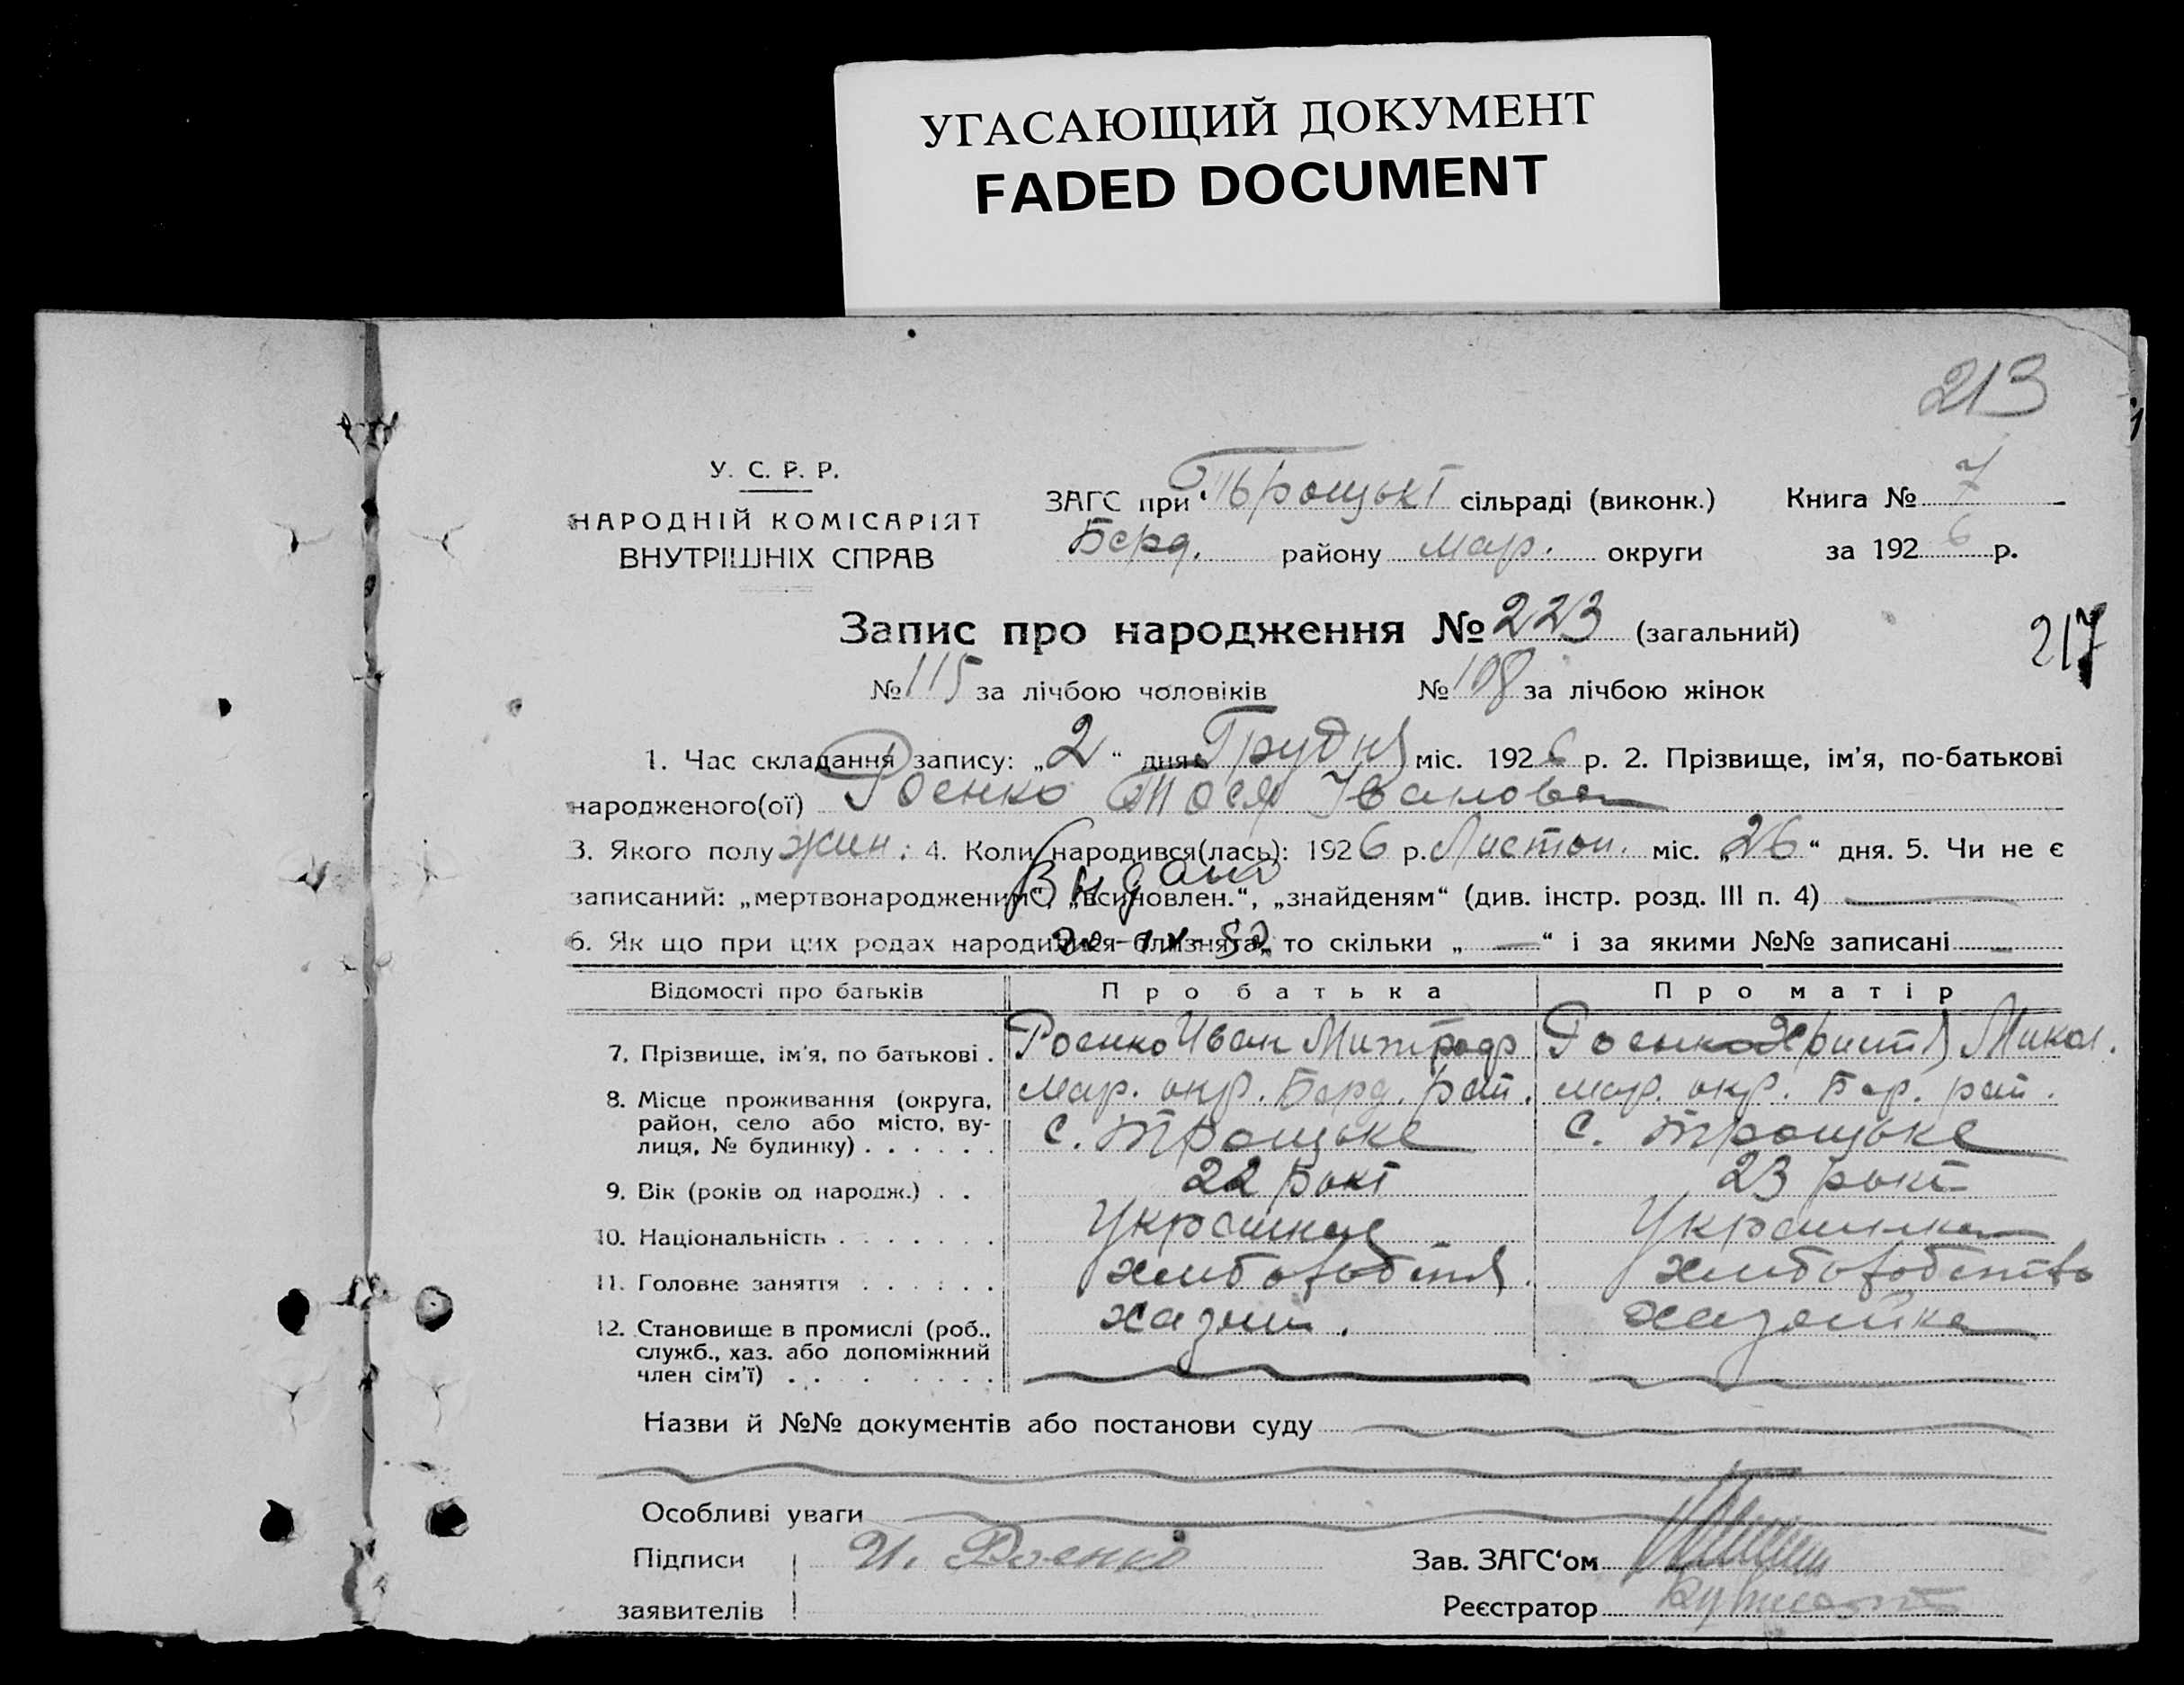 УГАСАЮЩИЙ ДОКУМЕНТ
FADED DOCUMENT
213
У. С. Р. Р.
НАРОДНІЙ КОМІСАРІЯТ
ВНУТРІШНІХ СПРАВ
ЗАГС при Троцькі сільраді (виконк.) Книга № 7
Берд. району Мар. округи за 1926 р.
Запис про народження № 223 (загальний)
217
№ 115 за лічбою чоловіків № 108 за лічбою жінок
1. Час складання запису: „2“ дня Грудня міс. 1926 р. 2. Прізвище, ім'я, по-батькові
народженого(ої) Роенко Тося Іванова
3. Якого полу жин. 4. Коли народився(лась): 1926 р. Листоп. міс. „26“ дня. 5. Чи не є
Видано
записаний: „мертвонародженим“, „всиновлен.“, „знайденям“ (див. інстр. розд. III п. 4)
6. Як що при цих родах народилися близнята, то скільки „—“ і за якими №№ записані —
Відомості про батьків Про батька Про матір
7. Прізвище, ім'я, по батькові . Роенко Иван Митроф Роенко Христя Микол.
8. Місце проживання (округа, район, село або місто, вулиця, № будинку) . . . . . .
Мар. окр. Берд. рай. Мар. окр. Бер. рай.
с. Троцьке с. Троцьке
9. Вік (років од народж.) . . 22 рокі 23 рокі
10. Національність . . . . . . . Украинец Украинка
11. Головне заняття . . . . . . хлибороб хлиборобство
12. Становище в промислі (роб., служб., хаз. або допоміжний член сім'ї) . . . . . . .
хазяин. хазяйка
Назви й №№ документів або постанови суду
Особливі уваги
Підписи И. Роенко Зав. ЗАГС'ом
заявителів Реєстратор